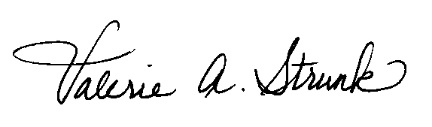 Valerie A. Strunk